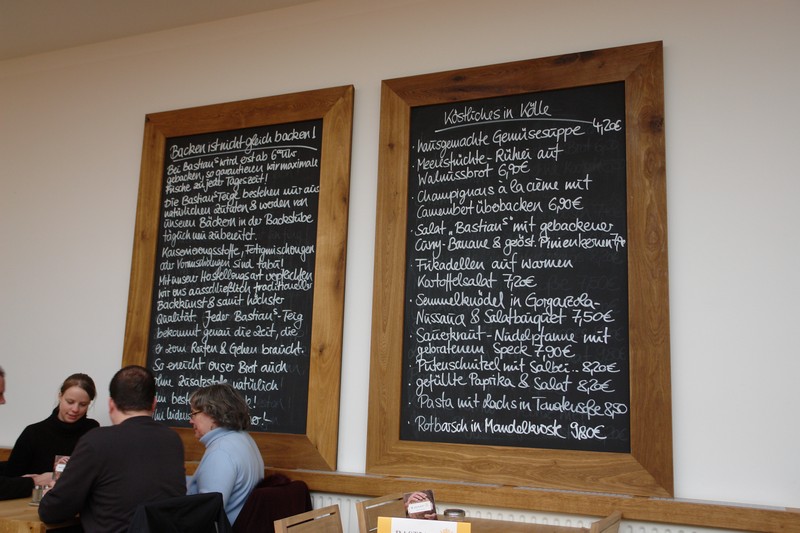 Backen ist nicht gleich backen!
Bei Bastian's wird erst ab 6 Uhr
gebacken, so garantieren wir maximale
Frische zu jeder Tageszeit!
Die Bastian's Teige bestehen nur aus
natürlichen Zutaten & werden von
unseren Bäckern in der Backstube
täglich neu zubereitet.
Konservierungsstoffe, Fertigmischungen
oder Vormischungen sind tabu!
Mit unserer Herstellungsart verpflichten
wir uns ausschließlich traditioneller
Backkunst & somit höchster
Qualität. Jeder Bastian's-Teig
bekommt genau die Zeit, die
er zum Reifen & Gehen braucht.
So erreicht unser Brot auch
ohne Zusatzstoffe natürlich
Köstliches in Kölle
· hausgemachte Gemüsesuppe 4,20€
· Meeresfrüchte-Rührei auf
Walnussbrot 6,90€
· Champignons à la crème mit
Camembert überbacken 6,90€
· Salat „Bastian's" mit gebackener
Curry-Banane & geröst. Pinienkernen
· Frikadellen auf warmen
Kartoffelsalat 7,20€
· Semmelknödel in Gorgonzola-
Nusssauce & Salatbouquet 7,50€
· Sauerkraut-Nudelpfanne mit
gebratenem Speck 7,90€
· Putenschnitzel mit Salbei.. 8,20€
· gefüllte Paprika & Salat 8,20€
· Pasta mit Lachs in 8,50
· Rotbarsch in Mandelkruste 9,80€